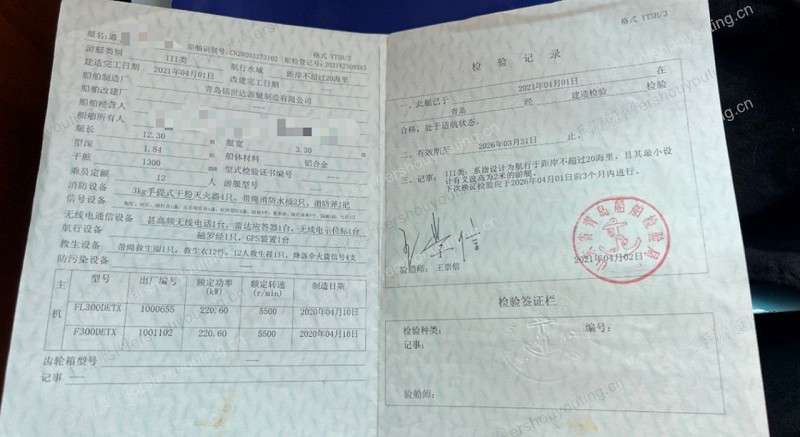 格式 YTSH/2
艇名:逍
船舶识别号:CN20203273102
船检登记号:2021V2300385
游艇类别 III类 航行水域 距岸不超过20海里
建造完工日期 2021年04月01日 改建完工日期
船舶制造厂 青岛铭世达游艇制造有限公司
船舶改建厂
船舶经营人
船舶所有人
艇长 12.30 m 艇宽 3.30 m
型深 1.84 m 船体材料 铝合金
干舷 1300 mm 型式检验证书编号
乘员定额 12 人 游艇型号
消防设备 3kg手提式干粉灭火器4只,带绳消防水桶2只,消防斧1把
信号设备
无线电通信设备 甚高频无线电话1台,雷达应答器1台,无线电示位标1台
航行设备 磁罗经1只,GPS装置1台
救生设备 带绳救生圈1只,救生衣12件,12人救生筏1只,降落伞火箭信号4支
防污染设备
主机 型号 出厂编号 额定功率(kW) 额定转速(r/min) 制造日期
FL300DETX 1000655 220.60 5500 2020年04月10日
F300DETX 1001102 220.60 5500 2020年04月10日
齿轮箱型号
记事
格式 YTSH/3
检验记录
一、此艇已于 2021年04月01日 在
青岛 经 建造检验 检验
合格,处于适航状态。
二、有效期至 2026年03月31日 止。
三、记事: III类:系指设计为航行于距岸不超过20海里,且其最小设
计有义波高为2米的游艇。
下次换证检验应于2026年04月01日前3个月内进行。
验船师: 王崇信
省青岛船舶检验局
2021年04月02日
检验签证栏
检验种类: 编号:
记事:
验船师:
手游艇网ershouyouting.cn